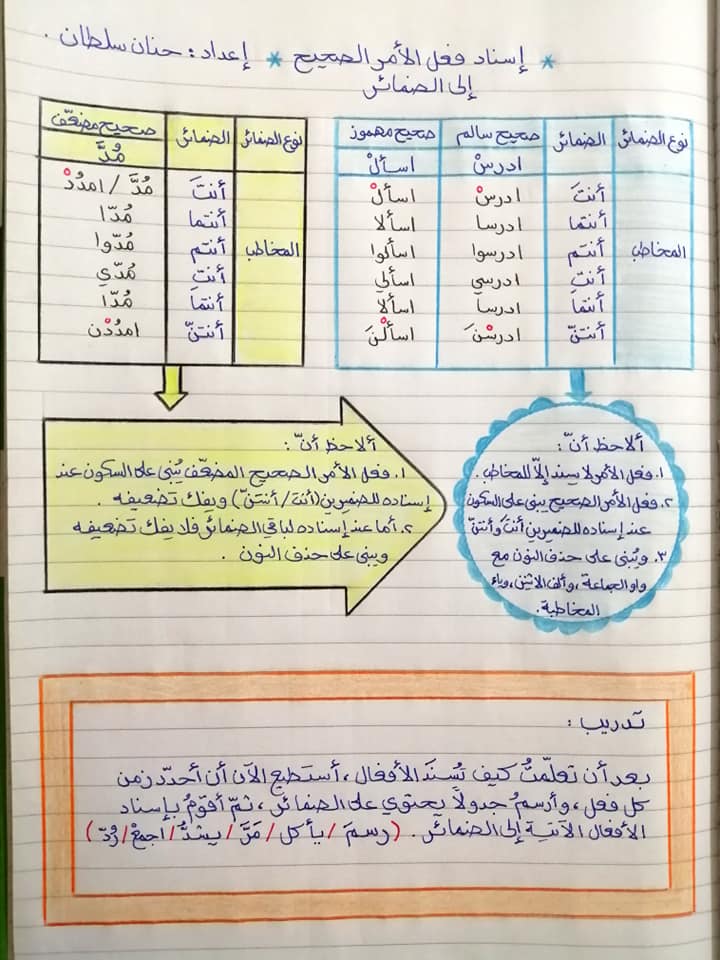 * إسناد فعل الأمر الصحيح * إعداد: حنان سلطان.
إلى الضمائر
نوع الضمائر الضمائر صحيح سالم صحيح مهموز
ادرسْ اسألْ
المخاطب
أنتَ ادرسْ اسألْ
أنتما ادرسا اسألا
أنتم ادرسوا اسألوا
أنتِ ادرسي اسألي
أنتما ادرسا اسألا
أنتنّ ادرسْنَ اسألْنَ
نوع الضمائر الضمائر صحيح مضعّف
مُدَّ
المخاطب
أنتَ مُدَّ / امدُدْ
أنتما مُدّا
أنتم مُدّوا
أنتِ مُدّي
أنتما مُدّا
أنتنّ امدُدْن
ألاحظ أنّ:
١. فعل الأمر لا يسند إلاّ للمخاطب.
٢. فعل الأمر الصحيح يبنى على السكون
عند إسناده للضميرين أنتَ وأنتنّ
٣. ويُبنى على حذف النون مع
واو الجماعة، وألف الاثنين، وياء
المخاطبة.
ألاحظ أنّ:
١. فعل الأمر الصحيح المضعّف يُبنى على السكون عند
إسناده للضميرين (أنتَ / أنتنّ) ويفك تضعيفه.
٢. أما عند إسناده لباقي الضمائر فلا يفك تضعيفه
ويبنى على حذف النون.
تدريب:
بعد أن تعلّمتُ كيف تُسنَد الأفعال، أستطيع الآن أن أحدّد زمن
كل فعل، وأرسمُ جدولاً يحتوي على الضمائر، ثمّ أقومُ بإسناد
الأفعال الآتية إلى الضمائر. (رسمَ / يأكل / مَرَّ / يشدُّ / اجمعْ / رُدّ)